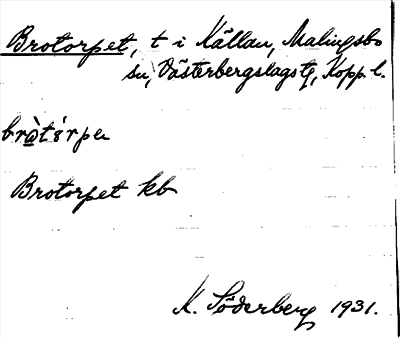 Brotorpet, t i Källan, Malingsbo
sn, Västerbergslags tg, Kopp. l.
Brotorpet kb
K. Söderberg 1931.